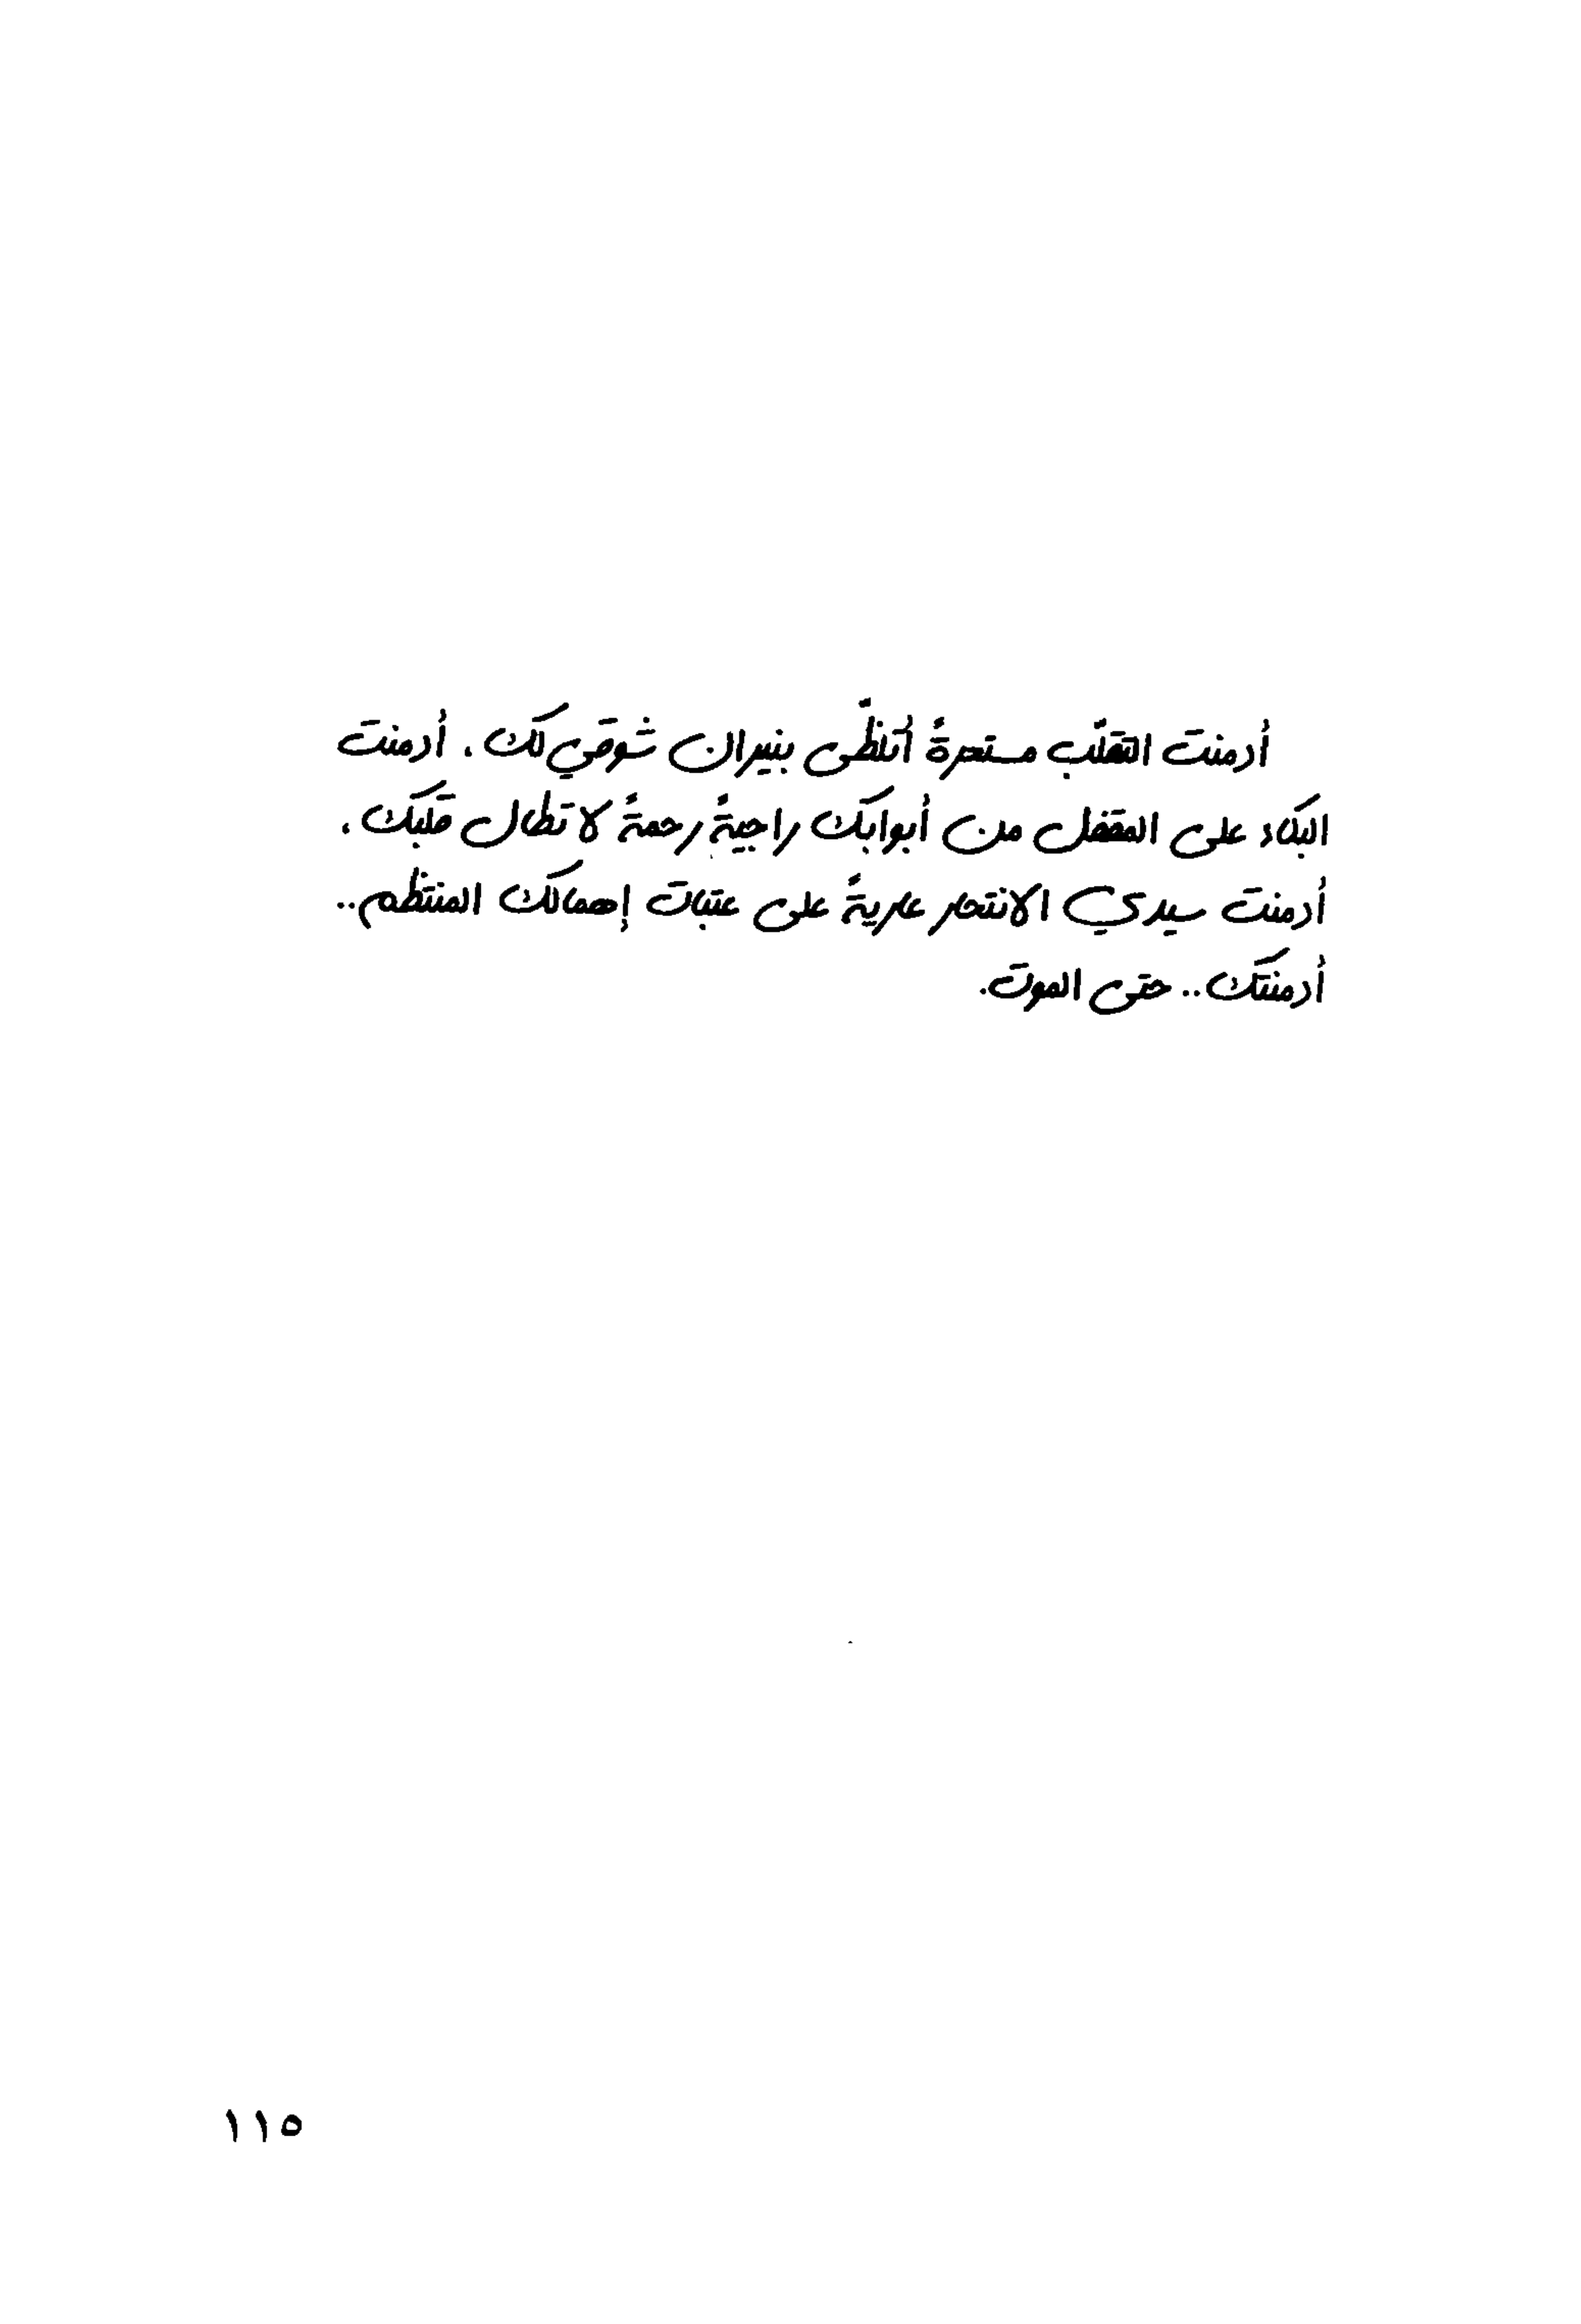 أدمنت التقلّب مستعرةً أتلظّى بنيران شوقي لك، أدمنت
البكاء على المقفل من أبوابك راجيةً رحمةً لا تطال قلبك،
أدمنت سيدي الانتحار عاريةً على عتبات إهمالك المنتظم..
أدمنتك.. حتى الموت.
١١٥